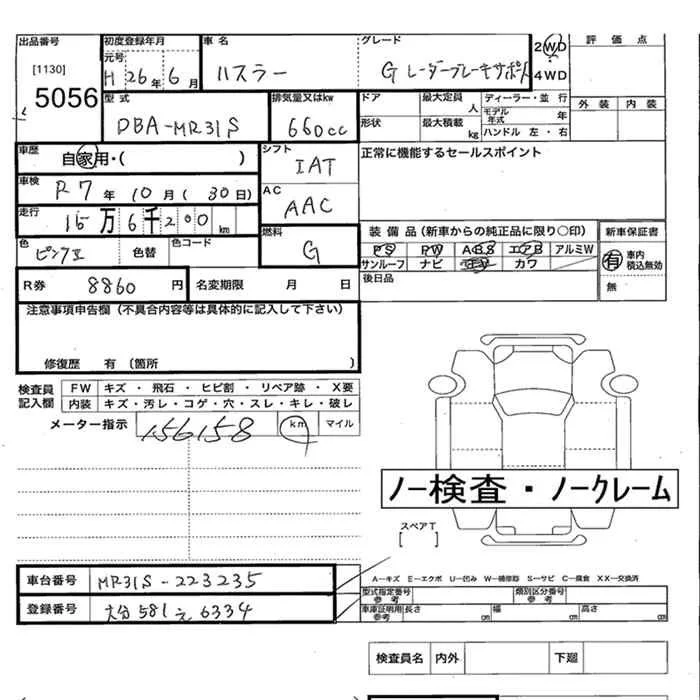 出品番号 初度登録年月 車名 グレード 2WD 評価点
[1130] 元号 H 26年 6月 ハスラー G レーダーブレーキサポート 4WD 外装 内装
5056 型式 排気量又はkw ドア 最大定員 人 ディーラー・並行
DBA-MR31S 660cc 形状 最大積載 kg モデル年式 年
ハンドル 左・右
車歴 自家用・( ) シフト IAT 正常に機能するセールスポイント
車検 R7年 10月(30日) AC AAC
走行 15万6千200 km
色 ピンクⅡ 色替 色コード 燃料 G
装備品(新車からの純正品に限り○印) 新車保証書
PS PW ABS エアB アルミW 有 車内積込無効
サンルーフ ナビ TV カワ 無
R券 8860円 名変期限 月 日 後日品
注意事項申告欄(不具合内容等は具体的に記入して下さい)
修復歴 有 (箇所 )
検査員記入欄 FW キズ・飛石・ヒビ割・リペア跡・X要
内装 キズ・汚レ・コゲ・穴・スレ・キレ・破レ
メーター指示 156158 km マイル
ノー検査・ノークレーム
スペアT
[ ]
車台番号 MR31S-223235
登録番号 大分 581 え 6334
A－キズ E－エクボ U－凹み W－補修跡 S－サビ C－腐食 XX－交換済
型式指定番号参考 類別区分番号参考
車庫証明用参考 長さ cm 幅 cm 高さ cm
検査員名 内外 下廻